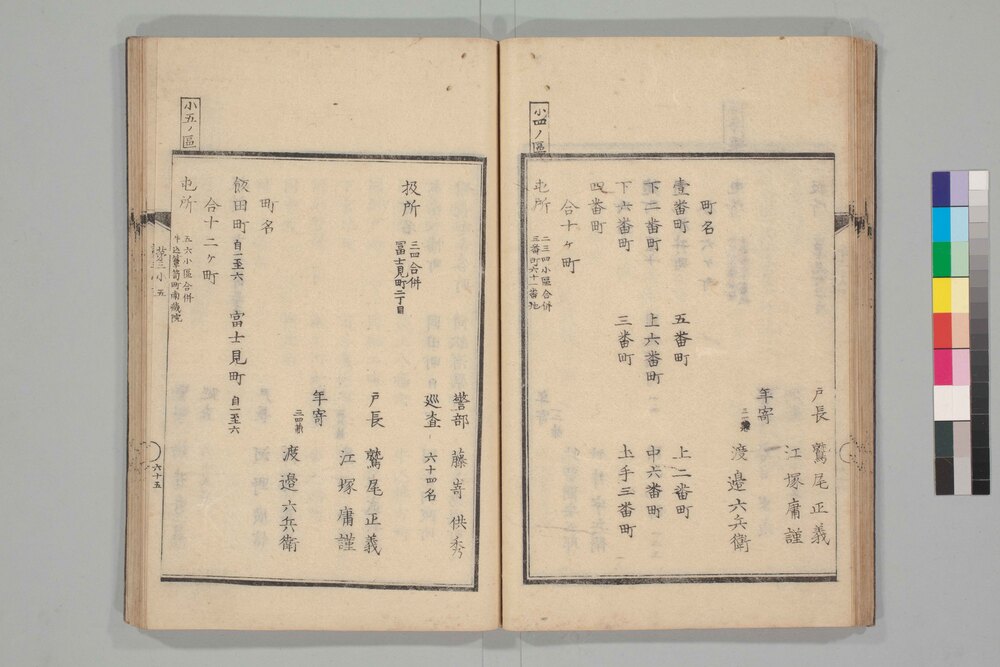 戸長 鷲尾正義
江塚庸謹
年寄 渡邉六兵衛
町名
壹番町 五番町 上二番町
下二番町 上六番町 中六番町
下六番町 三番町 土手三番町
四番町
合十ヶ町
小四ノ區
屯所 二三四小區合併 三番町六十一番地
警部 藤嵜供秀
扱所 三四合併 冨士見町二丁目
巡査 六十四名
戸長 鷲尾正義
江塚庸謹
年寄 三四兼 渡邉六兵衛
町名
飯田町 自一至六 富士見町 自一至六
合十二ヶ町
小五ノ區
屯所 五六小區合併 牛込簞笥町南蔵院
第三小五
六十五